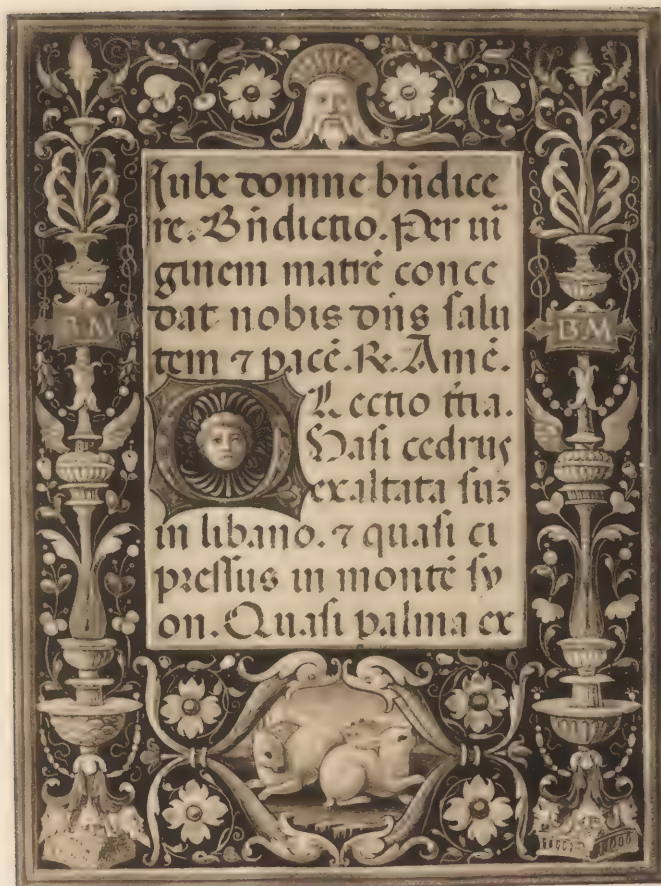 B M
B·M
Iube domne bñdice
re. Bñdictio. Per uī
ginem matrē conce
dat nobis dñs salu
tem ⁊ pacē. R. Amē.
Lectio ttia.
QUasi cedrus
exaltata suʒ
in libano. ⁊ quasi ci
pressus in montē sy
on. Quasi palma ex